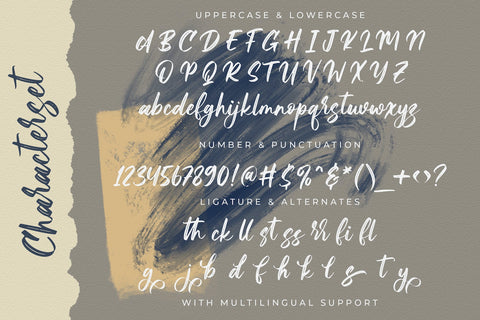 Characterset
UPPERCASE & LOWERCASE
ABCDEFGHIJKLMN
OPQRSTUVWXYZ
abcdefghijklmnopqrstuvwxyz
NUMBER & PUNCTUATION
1234567890!@#$%^&*()_+<>?
LIGATURE & ALTERNATES
th ck ll st ss rr fi fl
g j b d f h k l s t y
WITH MULTILINGUAL SUPPORT